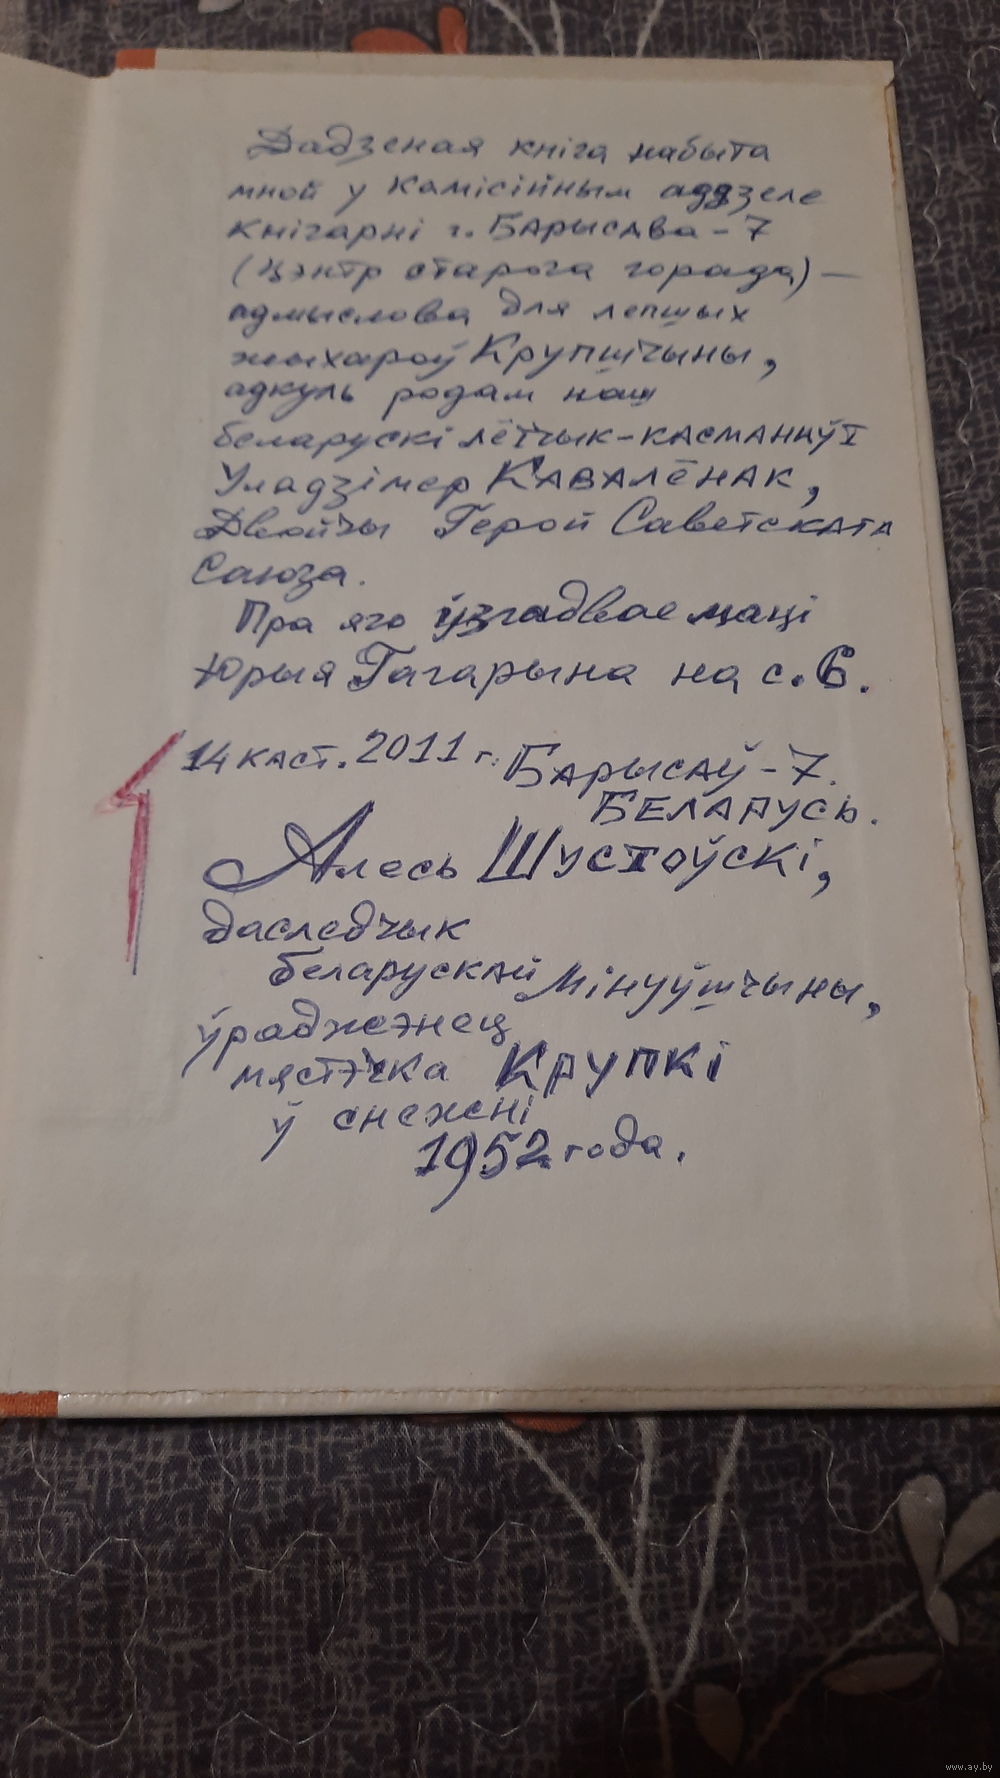 Дадзеная кніга набыта
мной у камісійным аддзеле
кнігарні г. Барысава-7
(цэнтр старога горада) —
адмыслова для лепшых
жыхароў Крупшчыны,
адкуль родам наш
беларускі лётчык-касманаўт
Уладзімер Кавалёнак,
Двойчы Герой Савецкага
Саюза.
Пра яго ўзгадвае маці
Юрыя Гагарына на с. 6.
14 каст. 2011 г. Барысаў-7.
Беларусь.
Алесь Шустоўскі,
даследчык
беларускай Мінуўшчыны,
ўраджэнец
мястэчка Крупкі
ў снежні
1952 года.
www.ay.by